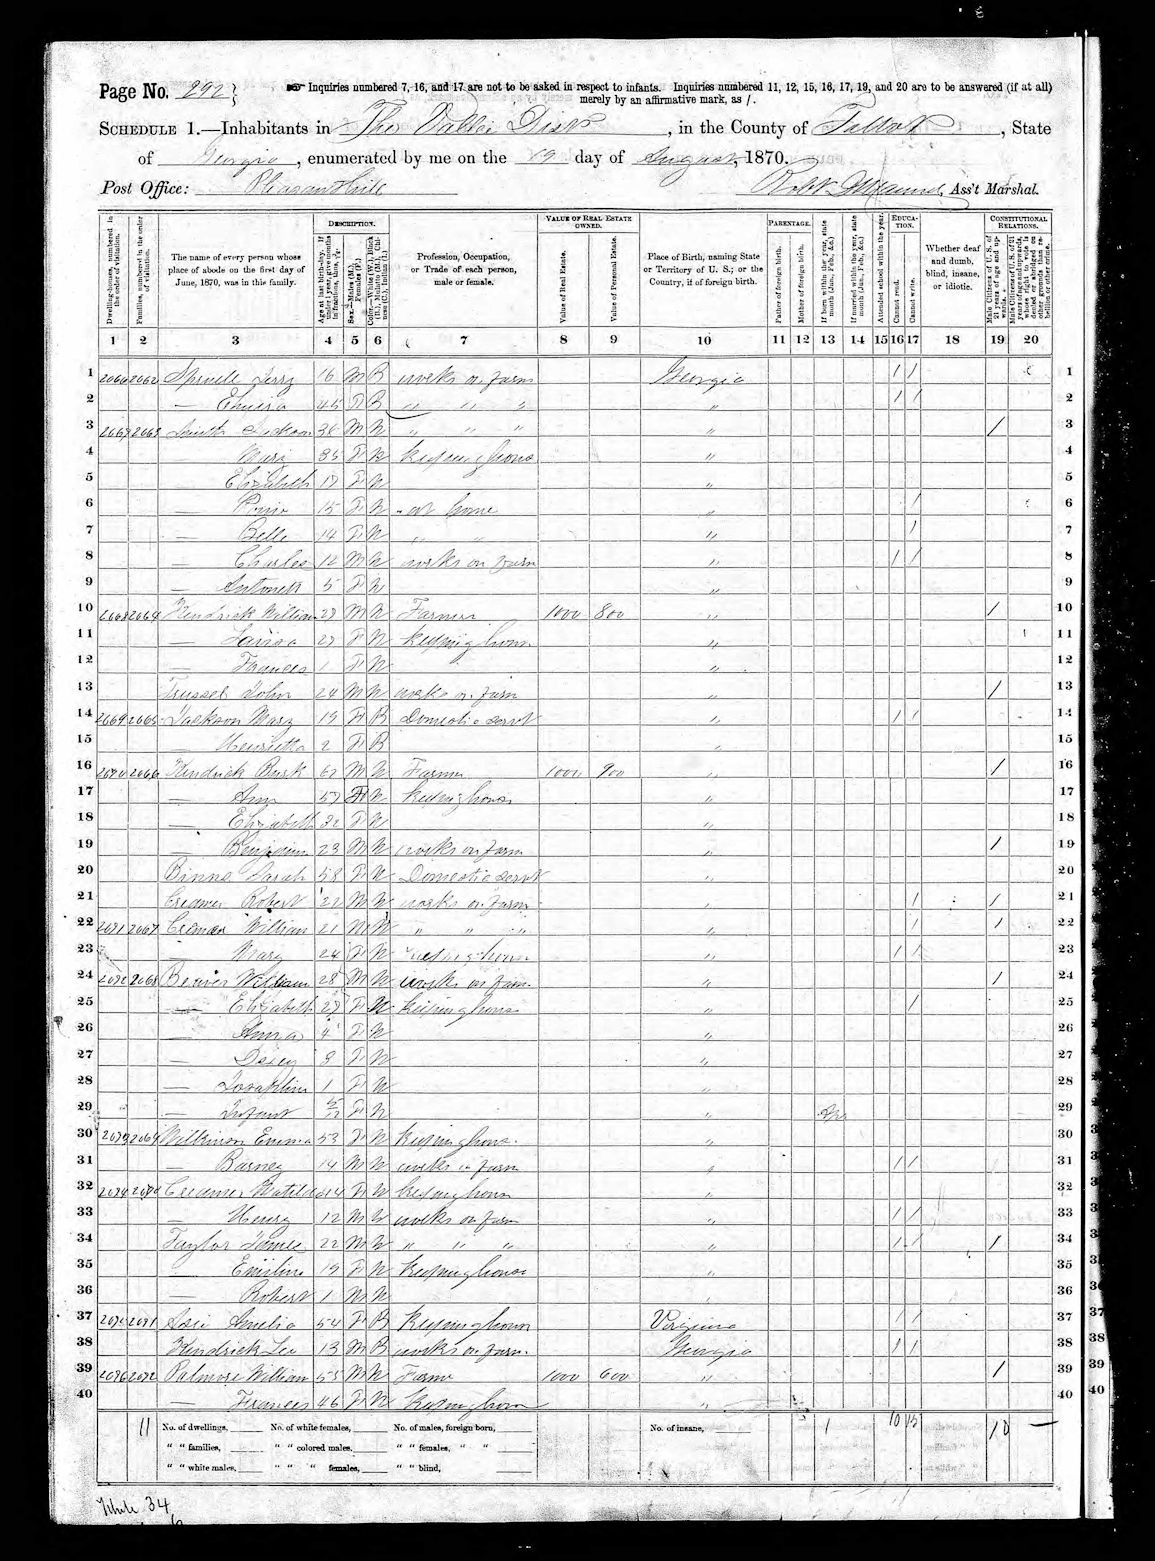 Page No. 292
Inquiries numbered 7, 16, and 17 are not to be asked in respect to infants. Inquiries numbered 11, 12, 15, 16, 17, 19, and 20 are to be answered (if at all)
merely by an affirmative mark, as /.
SCHEDULE 1.—Inhabitants in Dist, in the County of Talbot, State
of Georgia, enumerated by me on the 19 day of August, 1870.
Post Office: Pleasant hill Robt, Ass't Marshal.
Dwelling-houses, numbered in the order of visitation.
Families, numbered in the order of visitation.
The name of every person whose place of abode on the first day of June, 1870, was in this family.
DESCRIPTION.
Age at last birth-day. If under 1 year, give months in fractions, thus, 3/12.
Sex.—Males (M.), Females (F.)
Color.—White (W.), Black (B.), Mulatto (M.), Chinese (C.), Indian (I.)
Profession, Occupation, or Trade of each person, male or female.
VALUE OF REAL ESTATE OWNED.
Value of Real Estate.
Value of Personal Estate.
Place of Birth, naming State or Territory of U. S.; or the Country, if of foreign birth.
PARENTAGE.
Father of foreign birth.
Mother of foreign birth.
If born within the year, state month (Jan., Feb., &c.)
If married within the year, state month (Jan., Feb., &c.)
Attended school within the year.
EDUCATION.
Cannot read.
Cannot write.
Whether deaf and dumb, blind, insane, or idiotic.
CONSTITUTIONAL RELATIONS.
Male Citizens of U. S. of 21 years of age and upwards.
Male Citizens of U. S. of 21 years of age and upwards, whose right to vote is denied or abridged on other grounds than rebellion or other crime.
1 2 3 4 5 6 7 8 9 10 11 12 13 14 15 16 17 18 19 20
1 2062 Jerry 16 M B works on farm Georgia / / 1
2 — 45 F B " " " " / / 2
3 2063 Smith Jackson 36 M W " " " " / 3
4 — 35 F W Keeping house " 4
5 Elizabeth 17 F W " 5
6 — 15 F W at home " / 6
7 — Belle 14 F W " " " / 7
8 — Charles 12 M W works on farm " / / 8
9 — 5 F W " 9
10 2068 2064 Kendrick William 27 M W Farmer 1000 800 " / 10
11 — 27 F W Keeping house " 11
12 — Frances 1 F W " 12
13 Trussel John 24 M W works on farm " / 13
14 2069 2065 Jackson Mary 19 F B Domestic servt " / / 14
15 — Henrietta 2 F B " 15
16 2070 2066 Kendrick Burk 62 M W Farmer 1000 900 " / 16
17 — Ann 57 F W Keeping house " 17
18 — Elizabeth 32 F W " 18
19 — Benjamin 23 M W works on farm " / 19
20 Binns Sarah 58 F W Domestic servt " 20
21 Creamer Robert 22 M W works on farm " / / 21
22 2071 2067 Creamer William 21 M W " " " " / / 22
23 — Mary 24 F W Keeping house " / / 23
24 2072 2068 Beaver William 28 M W works on farm " / 24
25 — Elizabeth 27 F W Keeping house " / 25
26 — Anna 4 F W " 26
27 — 3 F W " 27
28 — Josephine 1 F W " 28
29 — Infant F W " 29
30 2073 2069 Wilkinson Emma 53 F W Keeping house " 30
31 — Barney 14 M W works on farm " / / 31
32 2074 2070 Creamer Matilda 44 F W Keeping house " 32
33 — Henry 12 M W works on farm " / / 33
34 Taylor James 22 M W " " " " / / / 34
35 — Emiline 19 F W Keeping house " 35
36 — Robert 1 M W " 36
37 2075 2071 Amelia 54 F B Keeping house Virginia / / 37
38 Kendrick Leo 13 M B works on farm Georgia / / 38
39 2076 2072 Palmore William 53 M W Farmer 1000 600 " / 39
40 — Frances 46 F W Keeping house " 40
11 No. of dwellings, No. of white females, No. of males, foreign born, No. of insane, 1 10 15 10 —
" " families, " " colored males, " " females, " "
" " white males, " " " females, " " blind,
White 34